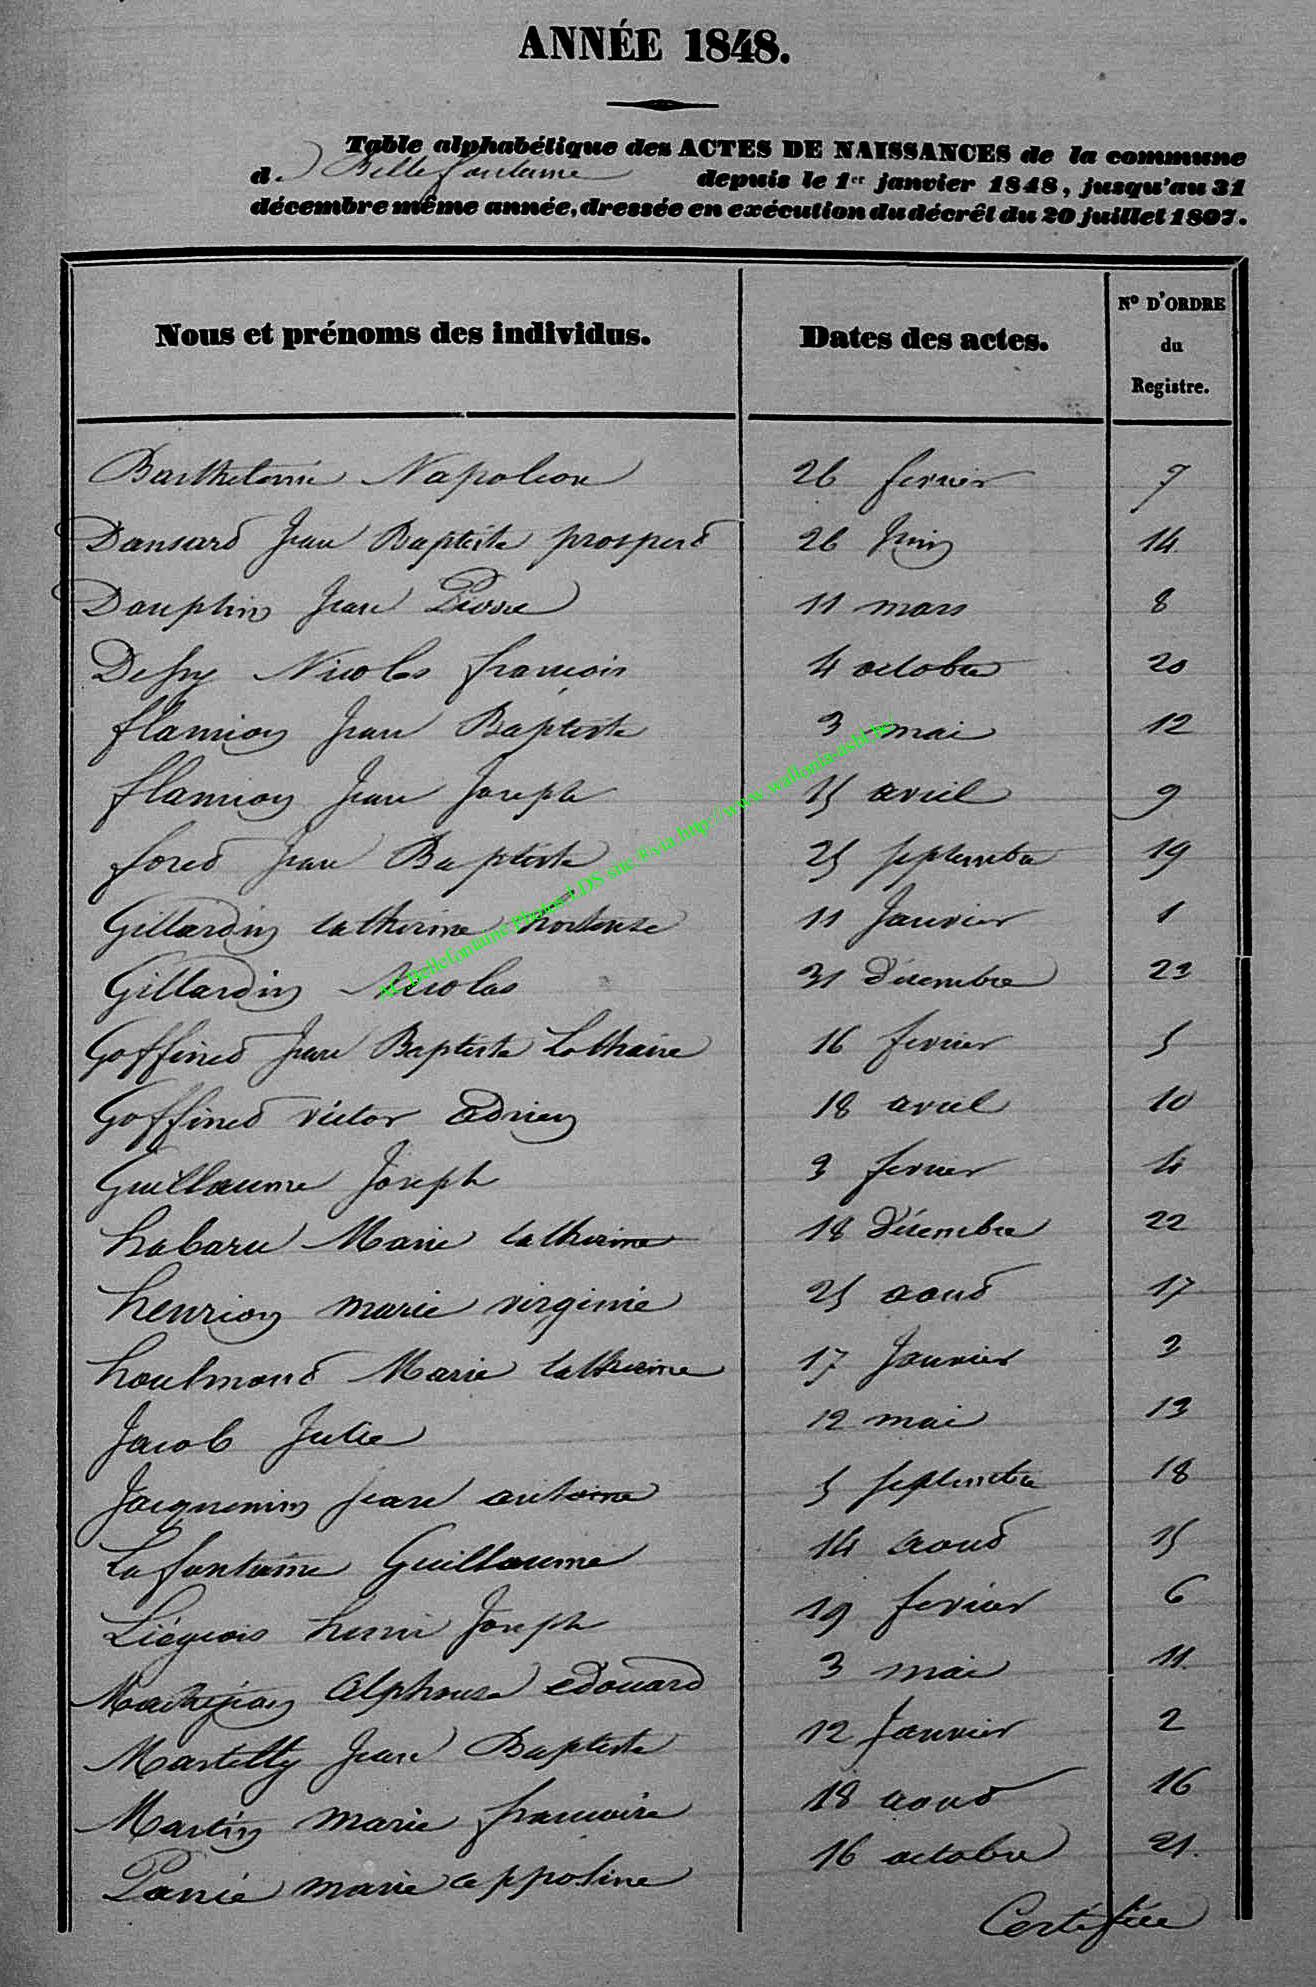 ANNÉE 1848.
Table alphabétique des ACTES DE NAISSANCES de la commune
d. Bellefontaine depuis le 1er janvier 1848, jusqu'au 31
décembre même année, dressée en exécution du décrêt du 20 juillet 1807.
Nous et prénoms des individus. Dates des actes. No D'ORDRE du Registre.
Barthelemi Napoleon 26 fevrier 7
Dansard Jean Baptiste prosperd 26 Juin 14
Dauphin Jean Pierre 11 mars 8
Defry Nicolas francois 4 octobre 20
flamion Jean Baptiste 3 mai 12
flamion Jean Joseph 15 avril 9
fored Jean Baptiste 25 septembre 19
Gillardin catherine hortense 11 Janvier 1
Gillardin Nicolas 31 Décembre 23
Goffined Jean Baptiste Lothaire 16 fevrier 5
Goffined victor Adrien 18 avril 10
Guillaume Joseph 3 fevrier 4
habaru Marie catherine 18 Décembre 22
henrion marie virginie 25 aoud 17
houlmond Marie catherine 17 Janvier 3
Jacob Julie 12 mai 13
Jacquemin Jean antoine 5 septembre 18
Lafontaine Guillaume 14 aoud 15
Liégeois henri Joseph 19 fevrier 6
Mathejean Alphonse edouard 3 mai 11
Martelly Jean Baptiste 12 Janvier 2
Martin marie francoise 18 aoud 16
Panié marie appoline 16 octobre 21
Certifiée
AC Bellefontaine Photos LDS site &via http://www.wallonia-asbl.be/